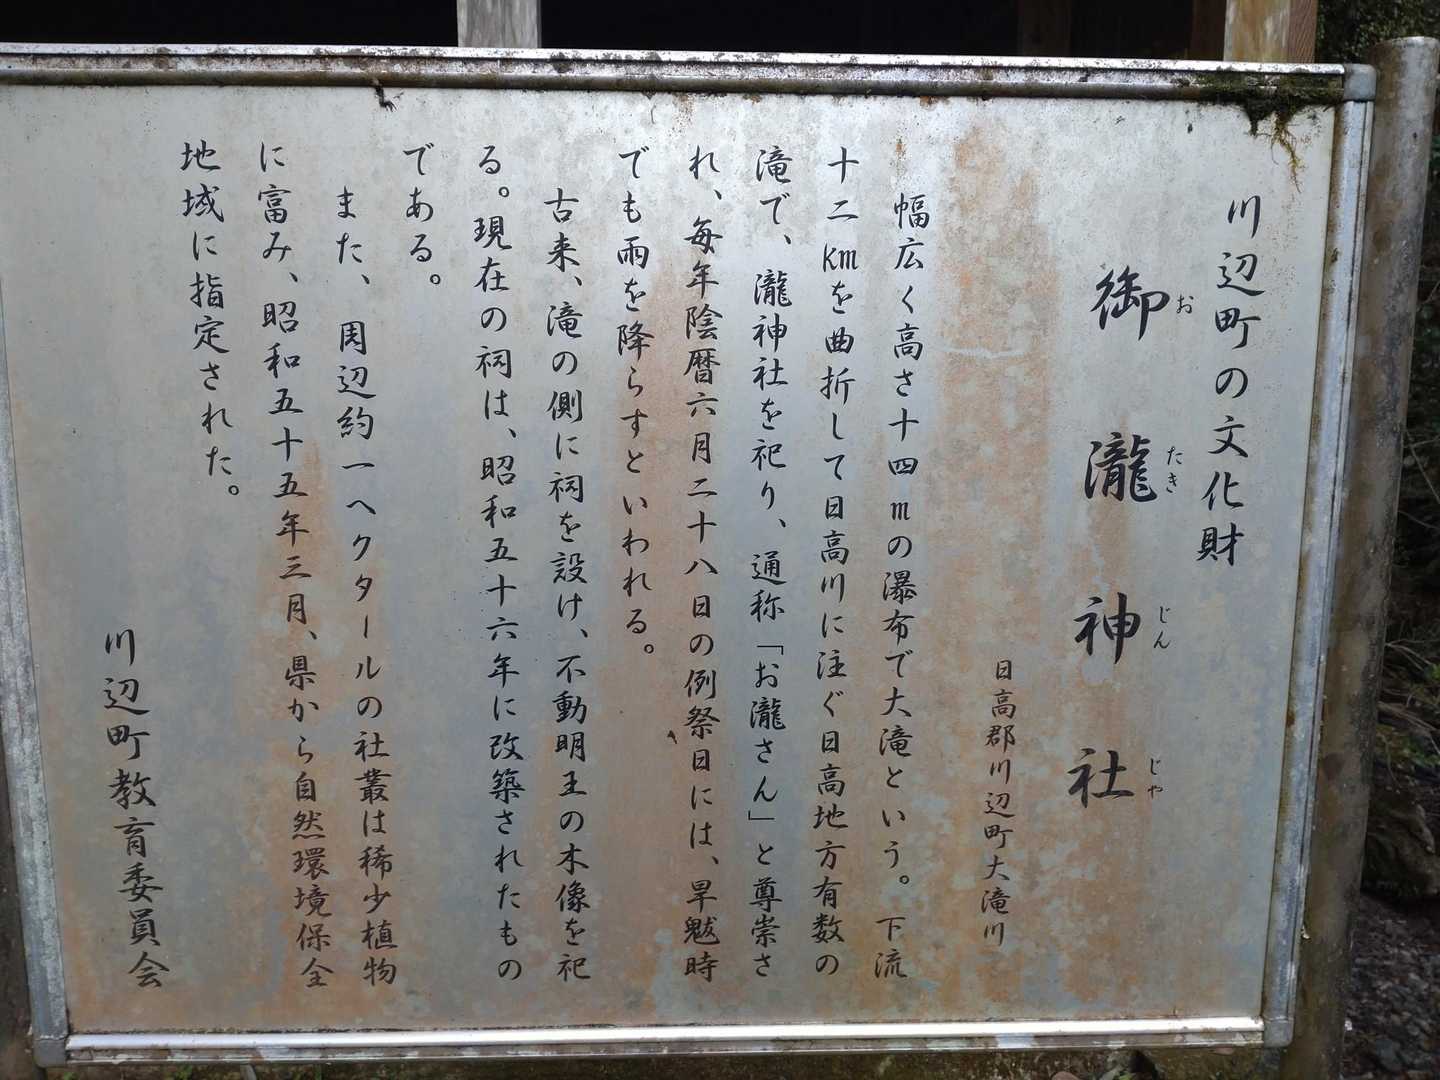 川辺町の文化財
御瀧神社
おたきじんじゃ
日高郡川辺町大滝川
幅広く高さ十四mの瀑布で大滝という。下流
十二kmを曲折して日高川に注ぐ日高地方有数の
滝で、瀧神社を祀り、通称「お瀧さん」と尊崇さ
れ、毎年陰暦六月二十八日の例祭日には、旱魃時
でも雨を降らすといわれる。
古来、滝の側に祠を設け、不動明王の木像を祀
る。現在の祠は、昭和五十六年に改築されたもの
である。
また、周辺約一ヘクタールの社叢は稀少植物
に富み、昭和五十五年三月、県から自然環境保全
地域に指定された。
川辺町教育委員会